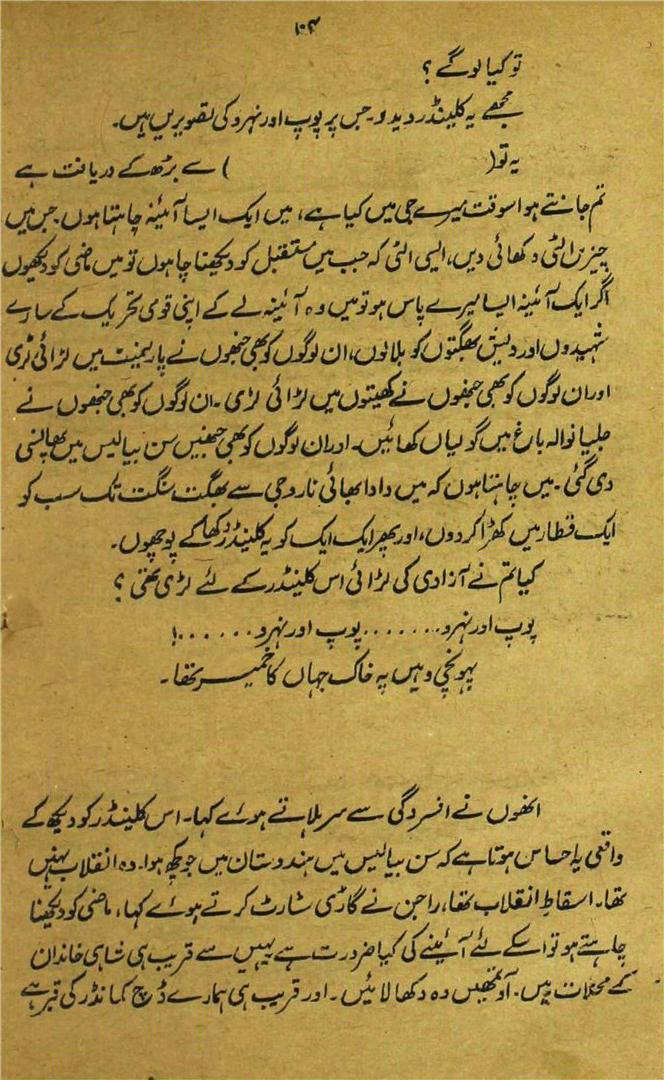 ۱۰۴
تو کیا لو گے ؟
مجھے یہ کلینڈر دیدو۔ جس پر پوپ اور نہرو کی تصویریں ہیں۔
یہ تو (                    ) سے بڑھ کے دریافت ہے
تم جانتے ہو اسوقت میرے جی میں کیا ہے، میں ایک ایسا آئینہ چاہتا ہوں۔ جس میں
چیزیں الٹی دکھائی دیں، ایسی الٹی کہ جب میں مستقبل کو دیکھنا چاہوں تو میں ماضی کو دیکھوں
اگر ایک آئینہ ایسا میرے پاس ہو تو میں وہ آئینہ لے کے اپنی قومی تحریک کے سارے
شہیدوں اور دیش بھگتوں کو بلا لوں، ان لوگوں کو بھی جنھوں نے پارلیمنٹ میں لڑائی لڑی
اور ان لوگوں کو بھی جنھوں نے کھیتوں میں لڑائی لڑی۔ ان لوگوں کو بھی جنھوں نے
جلیانوالہ باغ میں گولیاں کھائیں۔ اور ان لوگوں کو بھی جنھیں سن بیالیس میں پھانسی
دی گئی۔ میں چاہتا ہوں کہ میں دادا بھائی ناروجی سے بھگت سنگت تک سب کو
ایک قطار میں کھڑا کر دوں، اور پھر ایک ایک کو یہ کلینڈر دکھا کے پوچھوں۔
کیا تم نے آزادی کی لڑائی اس کلینڈر کے لئے لڑی تھی ؟
پوپ اور نہرو۔۔۔۔۔۔۔ پوپ اور نہرو۔۔۔۔۔۔!
پہونچی وہیں پہ خاک جہاں کا خمیر تھا۔
انھوں نے افسردگی سے سر ہلاتے ہوئے کہا۔ اس کلینڈر کو دیکھ کے
واقعی یہ احساس ہوتا ہے کہ سن بیالیس میں ہندوستان میں جو کچھ ہوا۔ وہ انقلاب نہیں
تھا۔ اسقاطِ انقلاب تھا، راجن نے گاڑی سٹارٹ کرتے ہوئے کہا، ماضی کو دیکھنا
چاہتے ہو تو اسکے لئے آئینے کی کیا ضرورت ہے یہیں سے قریب ہی شاہی خاندان
کے محلات ہیں۔ آؤ تمھیں وہ دکھا لائیں۔ اور قریب ہی ہمارے ڈچ کمانڈر کی قبر ہے